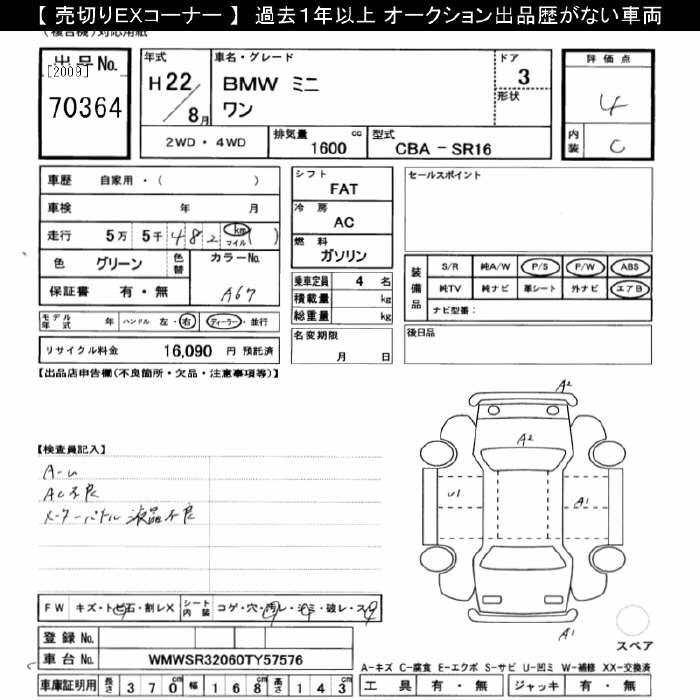 【 売切りEXコーナー 】 過去1年以上 オークション出品歴がない車両
(複合機)対応用紙
出品No.
[2009]
70364
年式
H22/8月
車名・グレード
BMW ミニ
ワン
ドア
3
形状
評価点
4
内装
C
2WD・4WD
排気量
1600 cc
型式
CBA - SR16
車歴 自家用・( )
車検 年 月
走行 5万 5千 4 8 2 km マイル ( )
色 グリーン
色替
カラーNo.
A67
保証書 有・無
モデル年式 年 ハンドル 左・右 ディーラー・並行
リサイクル料金 16,090 円 預託済
シフト
FAT
冷房
AC
燃料
ガソリン
乗車定員 4 名
積載量 kg
総重量 kg
名変期限
月 日
セールスポイント
装備品
S/R 純A/W P/S P/W ABS
純TV 純ナビ 革シート 外ナビ エアB
ナビ型番:
後日品
【出品店申告欄(不良箇所・欠品・注意事項等)】
【検査員記入】
AC不良
液晶不良
A2
A2
U1
A1
A1
スペア
FW キズ・トビ石・割レX
シート内装 コゲ・穴・汚レ・シミ・破レ・スレ
登録No.
車台No. WMWSR32060TY57576
車庫証明用 長さ 370cm 幅 168cm 高さ 143cm
A-キズ C-腐食 E-エクボ S-サビ U-凹ミ W-補修 XX-交換済
工具 有・無 ジャッキ 有・無